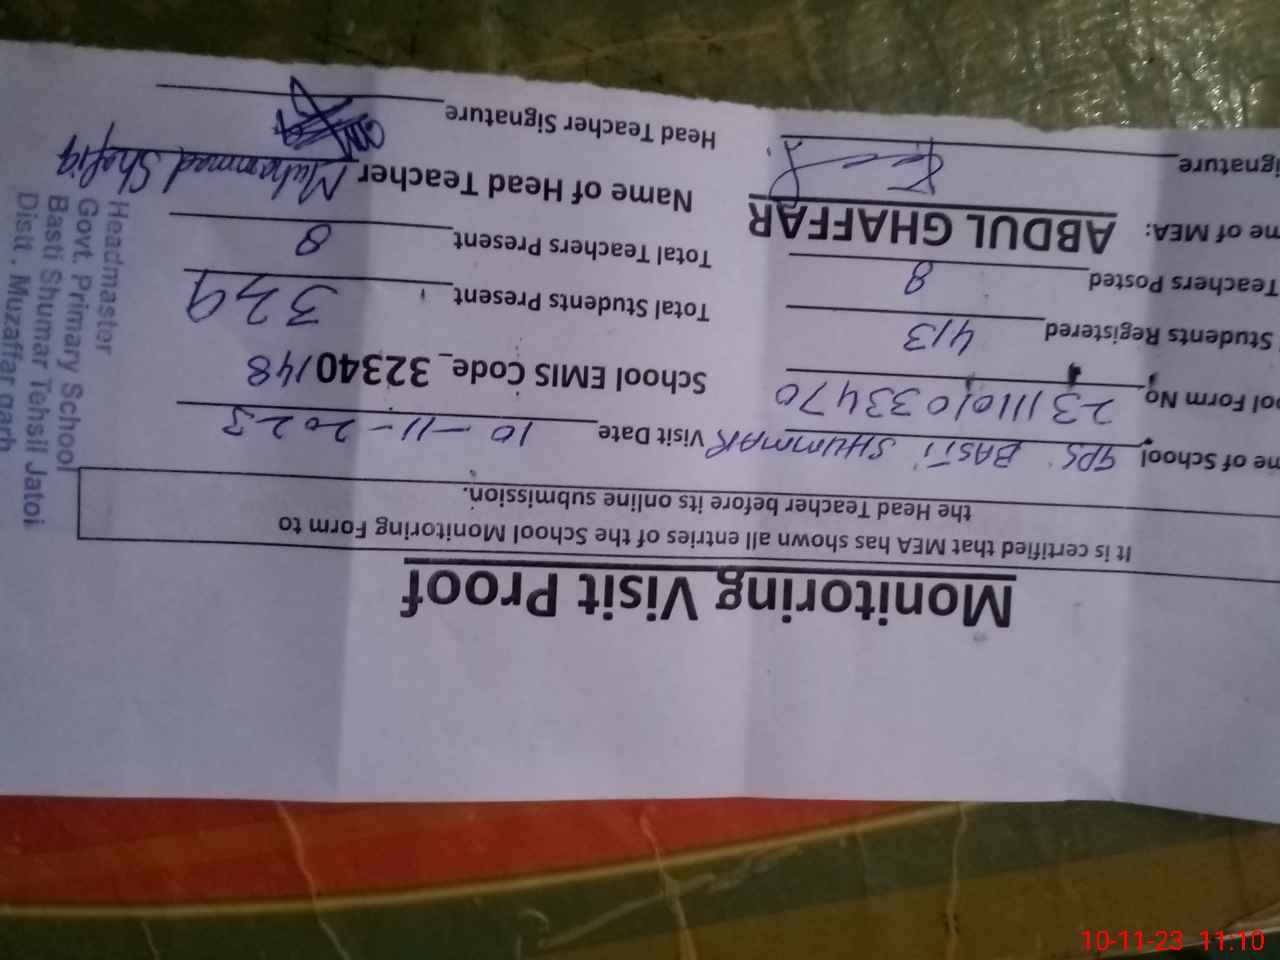 Monitoring Visit Proof
It is certified that MEA has shown all entries of the School Monitoring Form to
the Head Teacher before its online submission.
me of School GPS BASTI SHUMMAR Visit Date 10-11-2023
ool Form No 2311101033470 School EMIS Code_ 32340148
Students Registered 413 Total Students Present 329
Teachers Posted 8 Total Teachers Present 8
me of MEA: ABDUL GHAFFAR Name of Head Teacher Muhammad Shafiq
ignature Head Teacher Signature
Headmaster
Govt. Primary School
Basti Shumar Tehsil Jatoi
Distt . Muzaffar garh
10-11-23 11:10